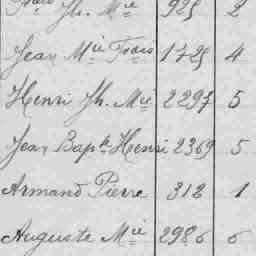 Frois Jh. Mie 925 2
Jean Mie Frois 1725 4
Henri Jh. Mie 2297 5
Jean Bapte Henri 2369 5
Armand Pierre 312 1
Auguste Mie 2986 6